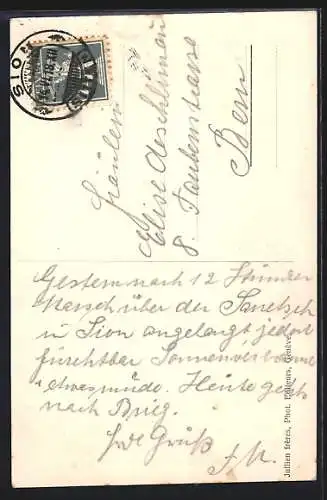 SION
Fräulein
Elise Aeschlimann
8. Taubenstrasse
Bern
Gestern nach 12 Stündigem
Marsch über der Sanetsch
in Sion angelangt jedoch
furchtbar Sonnenverbrannt
etwas müde. Heute geht's
nach Brieg.
Gruß
Jullien frères, Phot. Editeurs, Genève